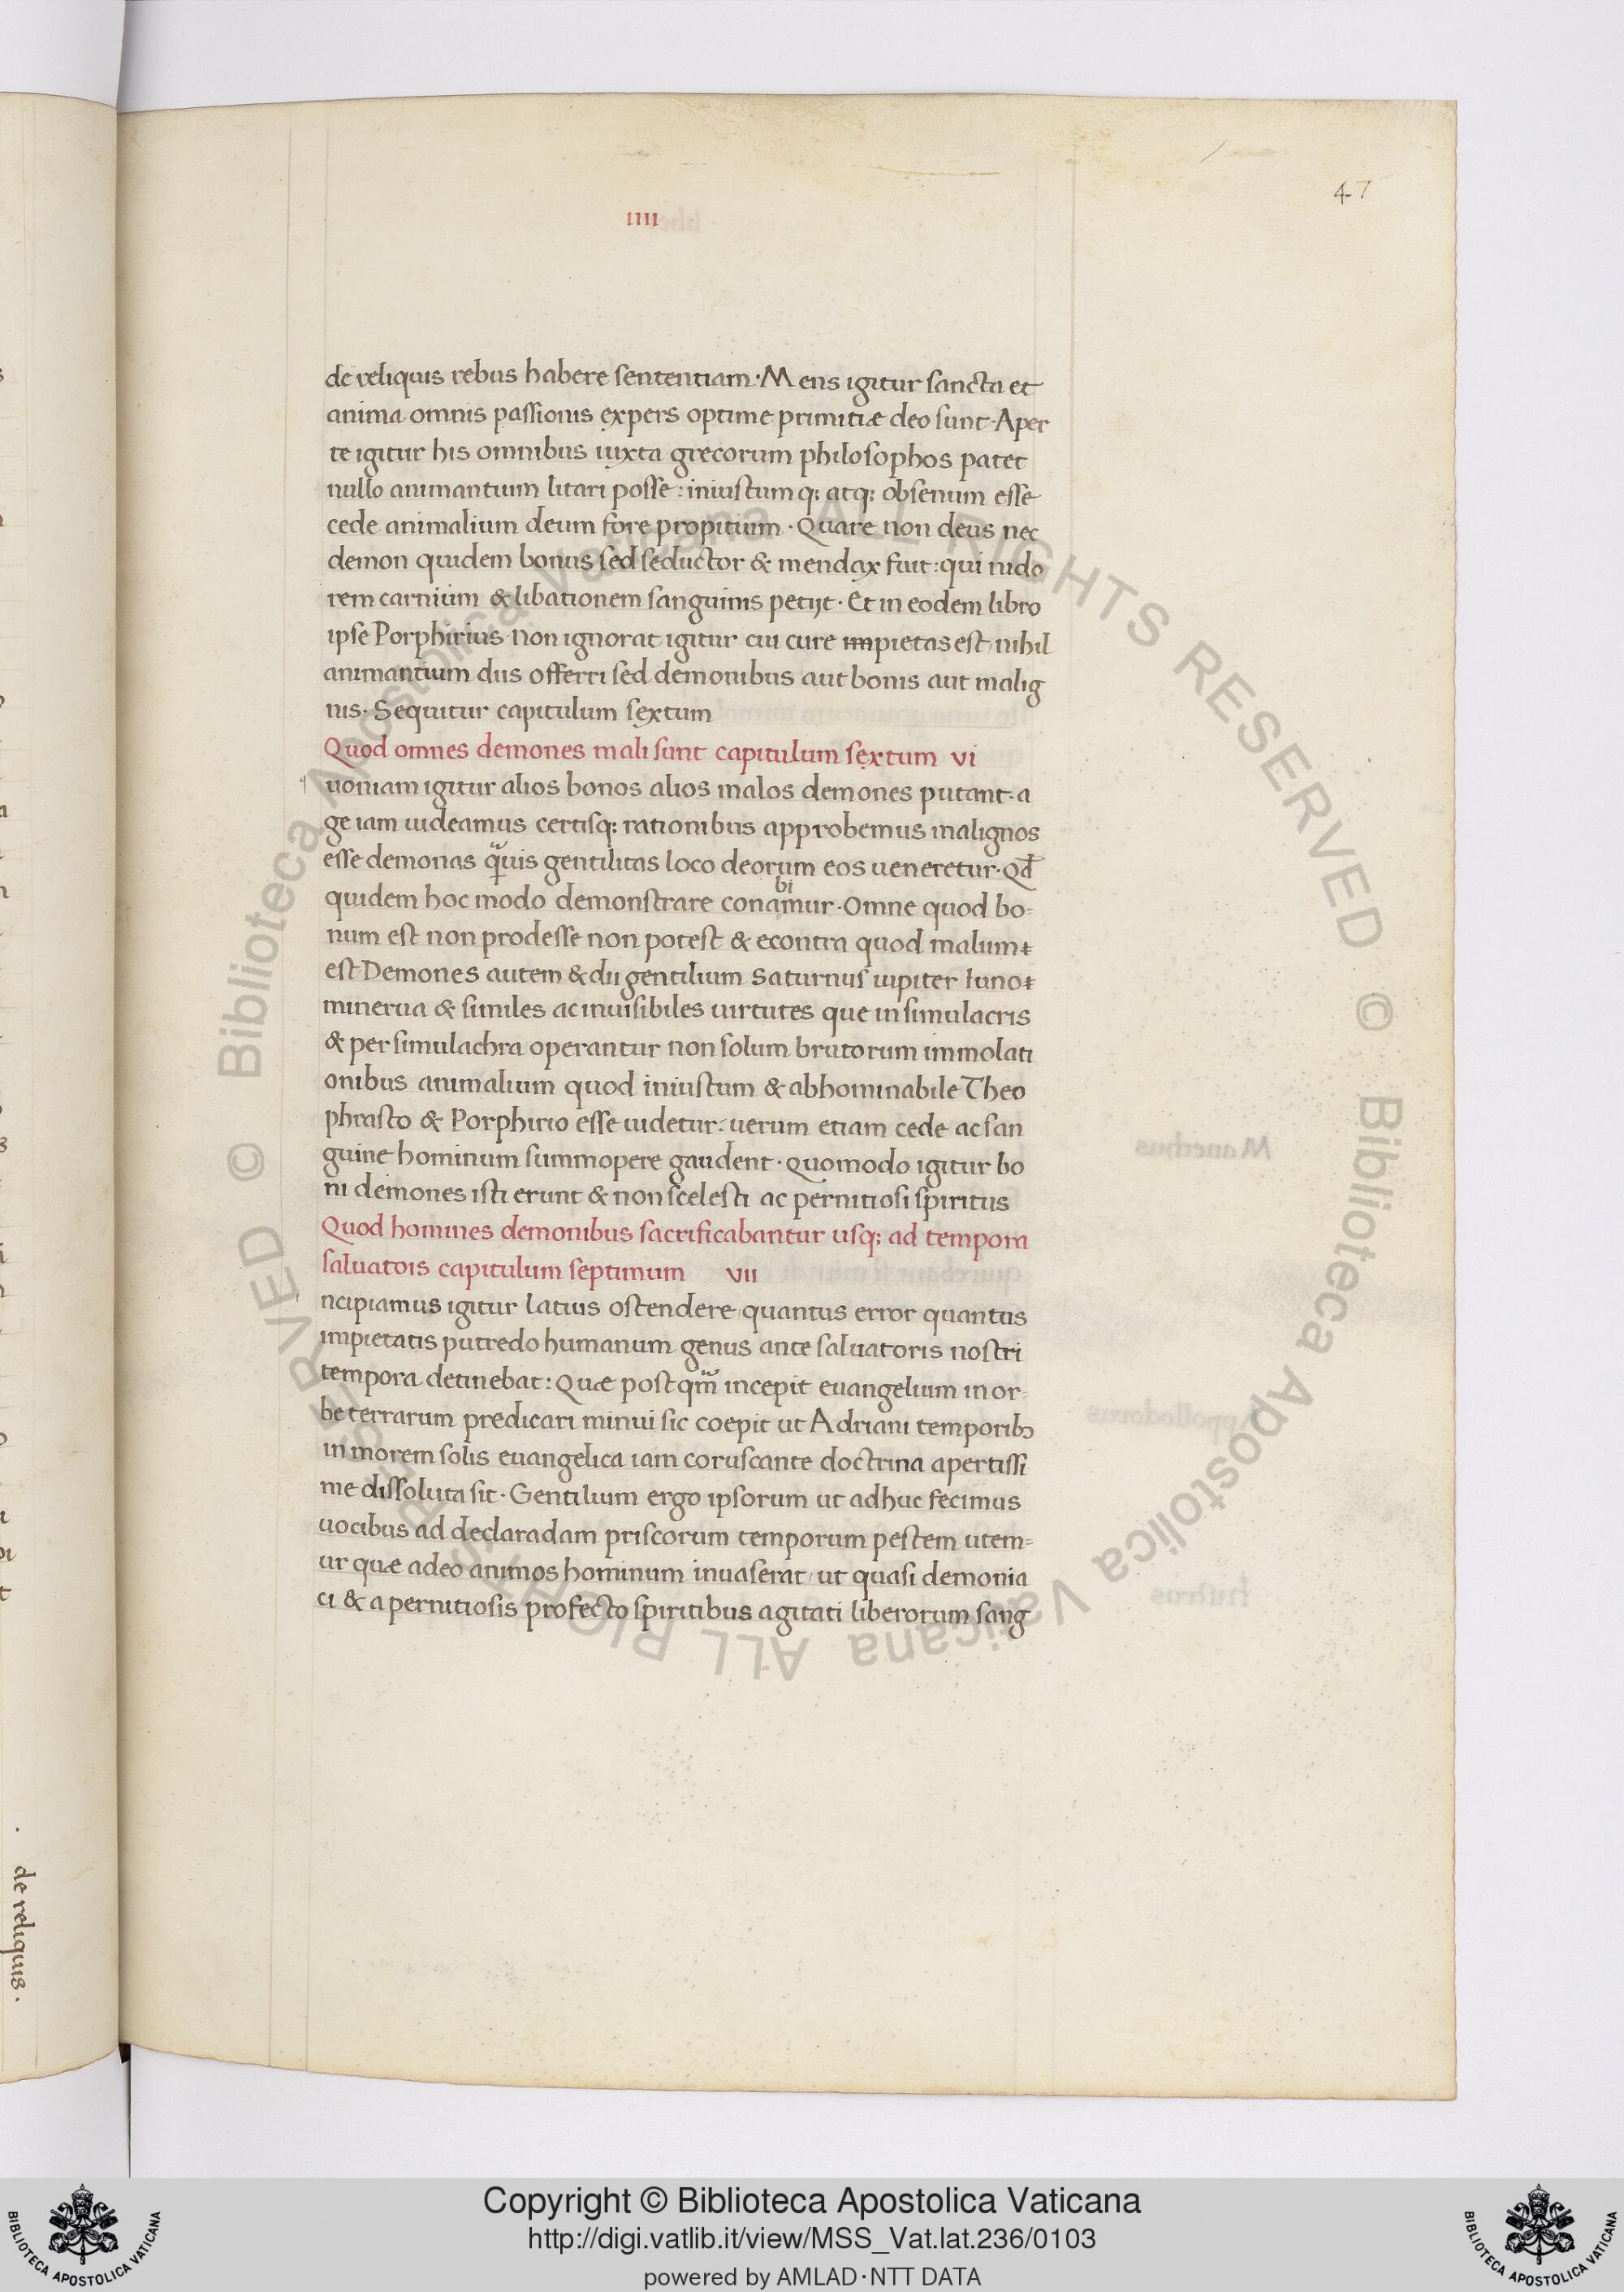 47
IIII
de reliquis rebus habere sententiam · Mens igitur sancta et
anima omnis passionis expers optime primitiæ deo sunt · Aper
te igitur his omnibus iuxta grecorum philosophos patet
nullo animantium litari posse : iniustumq; atq; obsenum esse
cede animalium deum fore propitium · Quare non deus nec
demon quidem bonus sed seductor & mendax fuit : qui nido
rem carnium & libationem sanguinis petijt · Et in eodem libro
ipse Porphirius non ignorat igitur cui cure impietas est nihil
animantium diis offerri sed demonibus aut bonis aut malig
nis · Sequitur capitulum sextum
Quod omnes demones mali sunt capitulum sextum vi
uoniam igitur alios bonos alios malos demones putant · a
ge iam uideamus certisq; rationibus approbemus malignos
esse demonas q̄uis gentilitas loco deorum eos ueneretur · Qd̄
bi
quidem hoc modo demonstrare conamur · Omne quod bo=
num est non prodesse non potest & econtra quod malum
est Demones autem & dii gentilium Saturnus iupiter Iuno
minerua & similes ac inuisibiles uirtutes que in simulacris
& per simulachra operantur non solum brutorum immolati
onibus animalium quod iniustum & abhominabile Theo
phrasto & Porphirio esse uidetur : uerum etiam cede ac san
guine hominum summopere gaudent · Quomodo igitur bo
ni demones isti erunt & non scelesti ac pernitiosi spiritus
Quod homines demonibus sacrificabantur usq; ad tempora
saluatois capitulum septimum vii
ncipiamus igitur latius ostendere quantus error quantus
impietatis putredo humanum genus ante saluatoris nostri
tempora detinebat : Quæ postqm̄ incepit euangelium in or=
be terrarum predicari minui sic coepit ut Adriani temporibꝫ
in morem solis euangelica iam coruscante doctrina apertissi
me dissoluta sit · Gentilium ergo ipsorum ut adhuc fecimus
uocibus ad declaradam priscorum temporum pestem utem=
ur quæ adeo animos hominum inuaserat ut quasi demonia
ci & a pernitiosis profecto spiritibus agitati liberorum sang
de reliquis ·
© Biblioteca Apostolica Vaticana ALL RIGHTS RESERVED
© Biblioteca Apostolica Vaticana ALL RIGHTS RESERVED
Copyright © Biblioteca Apostolica Vaticana
http://digi.vatlib.it/view/MSS_Vat.lat.236/0103
powered by AMLAD·NTT DATA
BIBLIOTECA APOSTOLICA VATICANA
BIBLIOTECA APOSTOLICA VATICANA